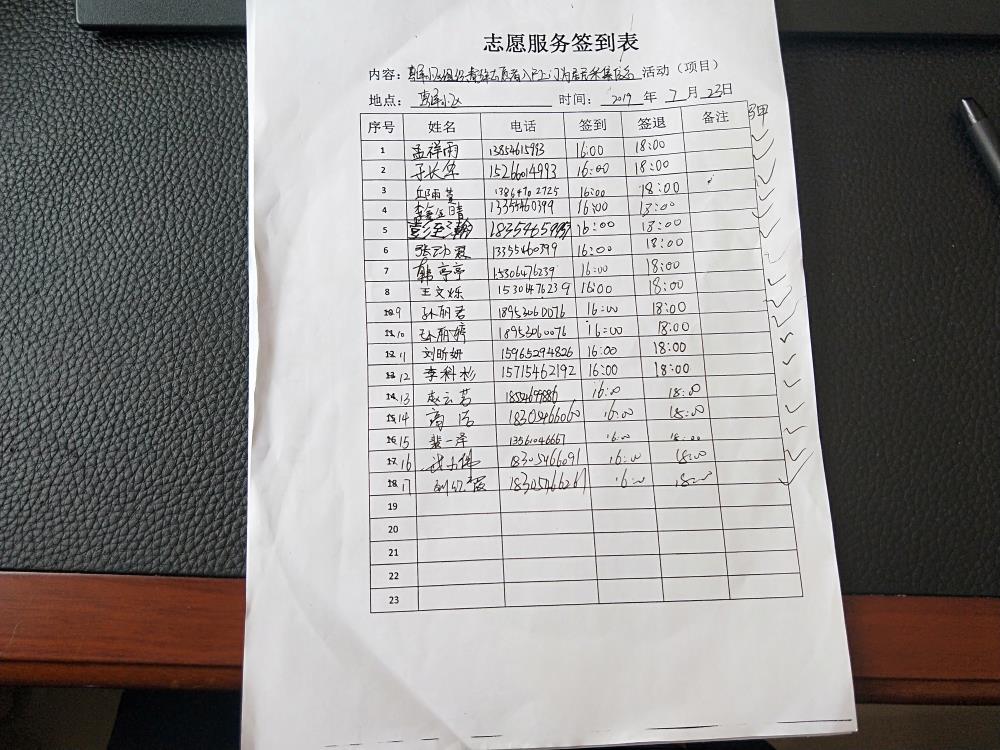 志愿服务签到表
内容： 活动（项目）
地点： 小区 时间： 2019 年 7 月 23日
序号 姓名 电话 签到 签退 备注
1 孟祥雨 13854615993 16:00 18:00
2 于长华 15266014993 16:00 18:00
3 邱雨萱 13864702725 16:00 18:00
4 13355460399 16:00 18:00
5 彭至瀚 16:00 18:00
6 13355460399 16:00 18:00
7 韩亭亭 15306476239 16:00 18:00
8 王文烁 15306476239 16:00 18:00
9 孙丽君 18953060076 16:00 18:00
10 孙丽婷 18953060076 16:00 18:00
11 刘昕妍 15965294826 16:00 18:00
12 李科杉 15715462192 16:00 18:00
13 赵云茗 16:00 18:00
14 高洁 18305466060 16:00 18:00
15 裴一泽 13561046667 16:00 18:00
16 18305466091 16:00 18:00
17 16:00 18:00
19
20
21
22
23